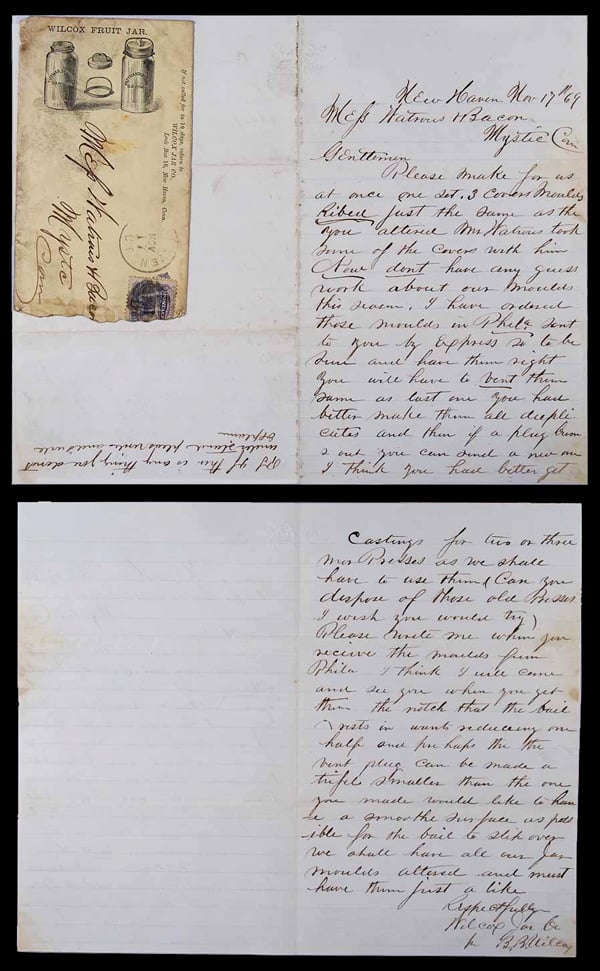 WILCOX FRUIT JAR.
If not called for in 10 days, return to
WILCOX JAR CO.
Lock Box 16, New Haven, Conn.
Mess Watrous & Bacon
Mystic
Con
NOV
New Haven Nov 17th 69
Mess Watrous & Bacon
Mystic Con
Gentlemen
Please make for us
at once one set. 3 Covers Moulds
Ribed just the same as the
you altered Mr. Watrous took
some of the covers with him
Now dont have any guess
work about our moulds
this season. I have ordered
those moulds in Phila sent
to you by Express so to be
sure and have them right
you will have to vent them
same as last one you had
better make them all dupli
cates and then if a plug burn
s out you can send a new one
I think you had better get
PS If there is any thing you dont
understand please write and I will
Explain
Castings for two or three
mor Presses as we shall
have to use them (Can you
dispose of those old Presses
I wish you would try)
Please write me when you
receive the moulds from
Phila I think I will come
and see you when you get
them the notch that the bail
rests in wants reduceing one
half and pre haps the the
vent plug can be made a
trifle smaller than the one
you made would like to hav
e a smoothe surface as poss
ible for the bail to slide over
we shall have all our Jar
moulds altered and must
have them just a like
Respectfully
Wilcox Jar Co
B.B. Wilcox